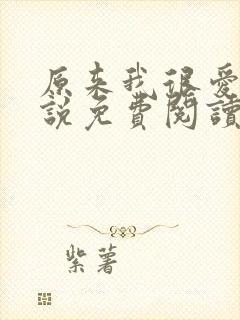 原来我很爱
說免費閱讀
紫薯